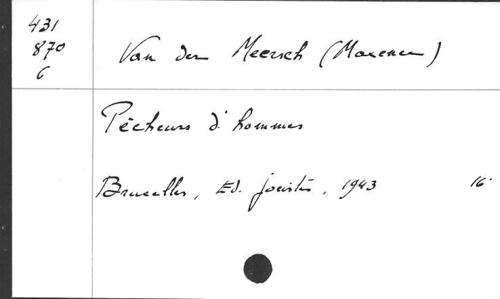 431
870
6
Van der Meersch (Maxence)
Pêcheurs d'hommes
Bruxelles, Ed. jocistes, 1943 16°